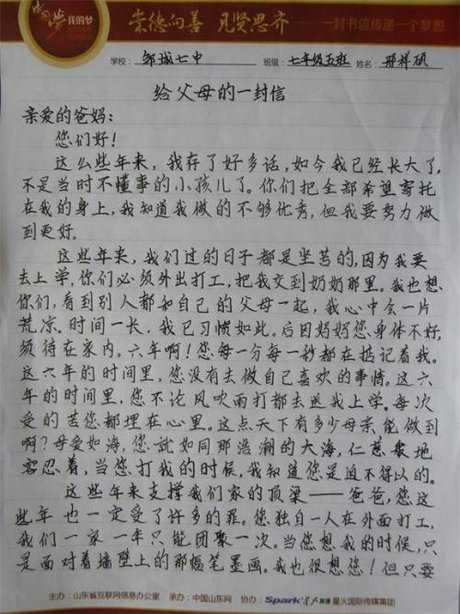 中国梦 我的梦
崇德向善 见贤思齐 ——一封书信传递一个梦想
学校：邹城七中 班级：七年级五班 姓名：邢祥硕
给父母的一封信
亲爱的爸妈：
您们好！
这么些年来，我存了好多话，如今我已经长大了，
不是当时不懂事的小孩儿了。你们把全部希望寄托
在我的身上，我知道我做的不够优秀，但我要努力做
到更好。
这些年来，我们过的日子都是坚苦的，因为我要
去上学，你们必须外出打工，把我交到奶奶那里。我也想
你们，看到别人都和自己的父母一起，我心中会一片
荒凉。时间一长，我已习惯如此。后因妈妈您身体不好，
须待在家内。六年啊！您每一分每一秒都在掂记着我。
这六年的时间里，您没有去做自己喜欢的事情。这六
年的时间里，您不论风吹雨打都去送我上学。每次
受的苦您都埋在心里。这点天下有多少母亲能做到
啊？母爱如海，您就如同那浩瀚的大海，仁慈般地
容忍着，当您打我的时候，我知道您是迫不得以的。
这些年来支撑我们家的顶梁——爸爸，您这
些年也一定受了许多的罪。您独自一人在外面打工，
我们一家一年只能团聚一次。当您想我的时候，只
是面对着墙壁上的那幅笔墨画。我也很想您！但只要
主办：山东省互联网信息办公室 承办：中国山东网 协办：Spark 星火国际传媒集团